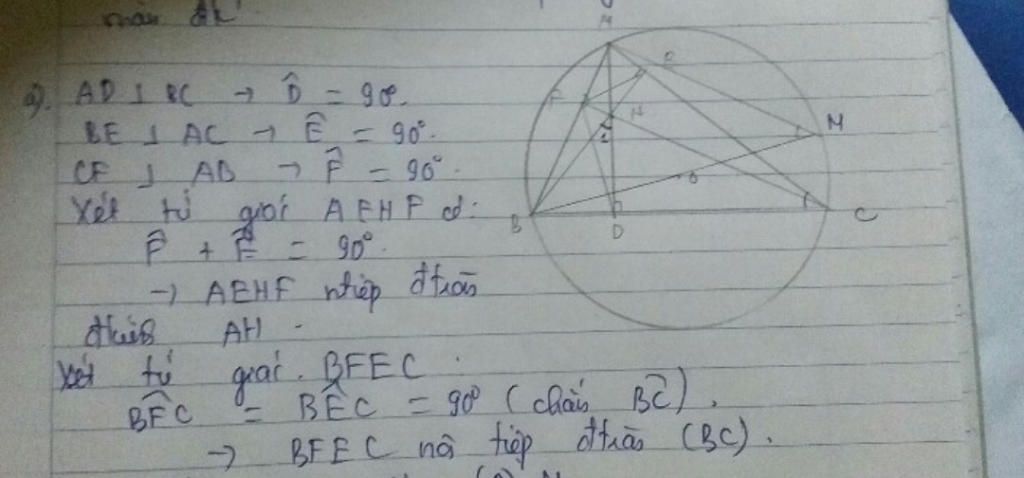 a). AD ⊥ BC → D̂ = 90°.
BE ⊥ AC → Ê = 90°.
CF ⊥ AB → F̂ = 90°.
Xét tứ giác AEHF có:
F̂ + Ê = 90°.
→ AEHF ntiếp đtròn
đkính AH.
Xét tứ giác. BFEC.
BF̂C = BÊC = 90° (chắn BC).
→ BFEC nội tiếp đtròn (BC).
A
E
F
H
M
O
B
D
C